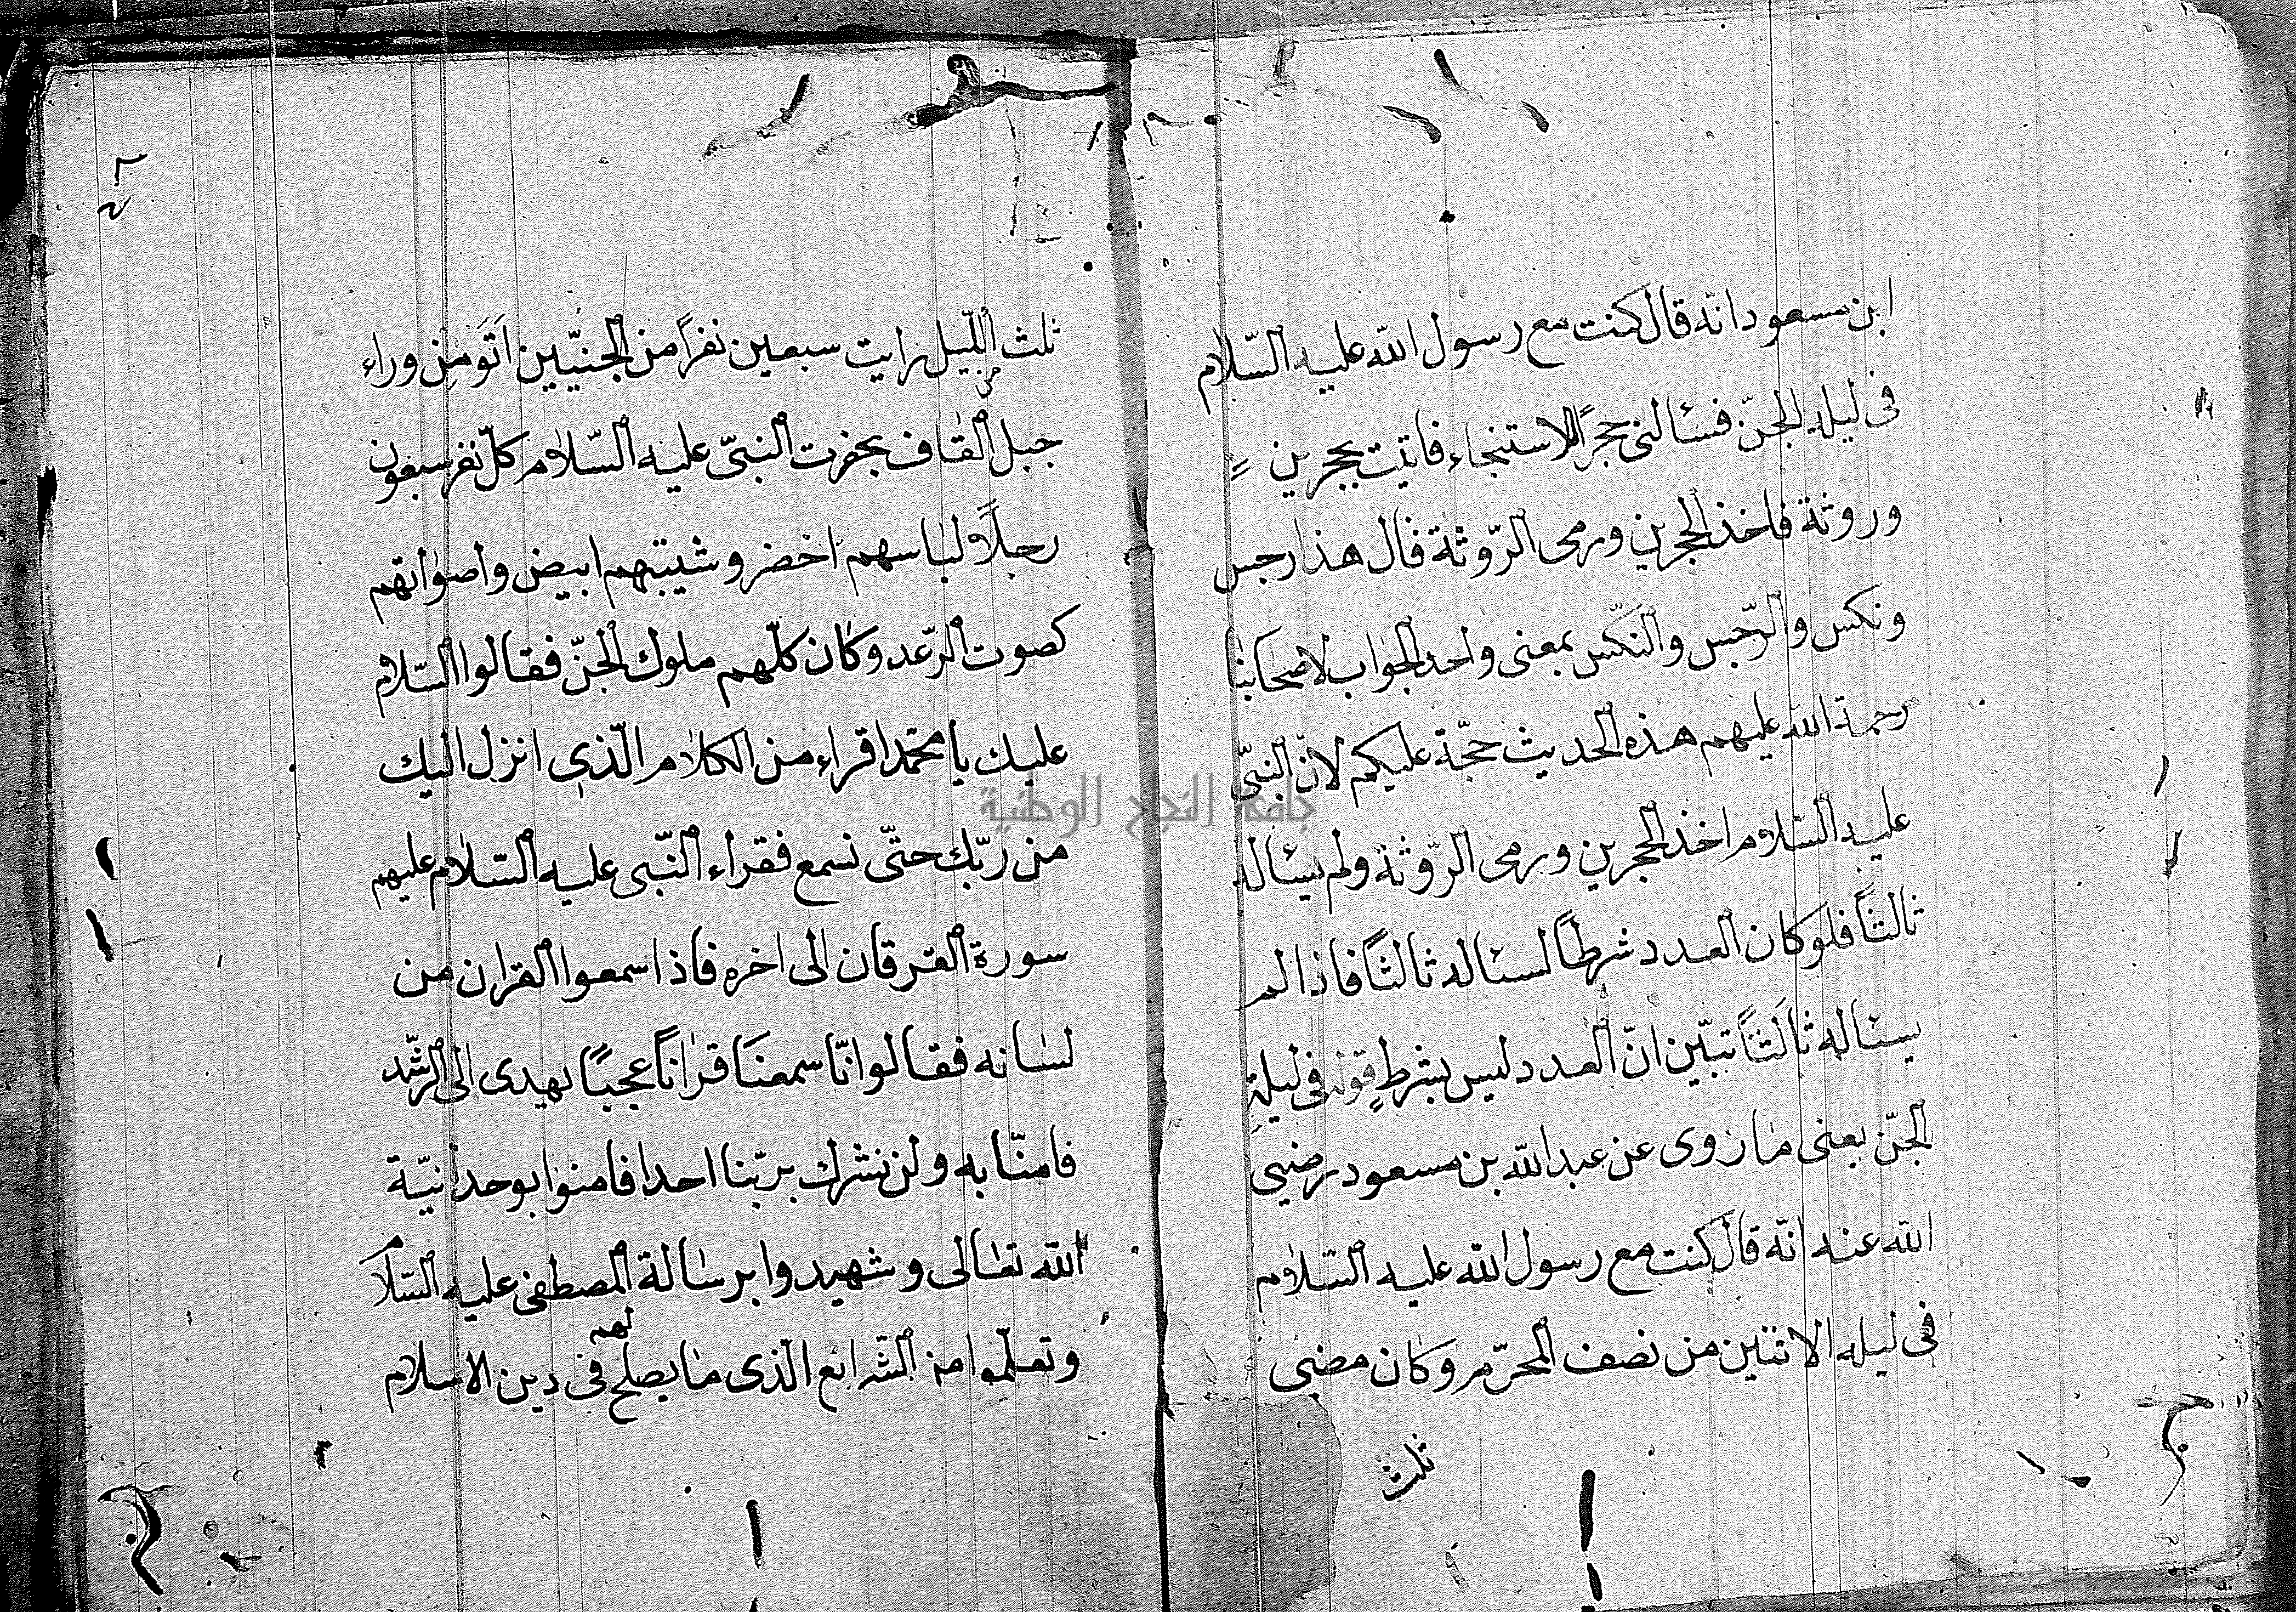 ابن مسعود انّه قال كنت مع رسول الله عليه السّلام
فى ليلة الجنّ فسئالنى حجرًا للاستنجاء فاتيت بحجرين
وروثة فاخذ الحجرين ورمى الرّوثة قال هذا رجس
ونكس والرّجس والنكس بمعنى واحد الجواب لاصحابنا
رحمة الله عليهم هذه الحديث حجّة عليكم لانّ النبىّ
عليه السّلام اخذ الحجرين ورمى الرّوثة ولم يسئاله
ثالثًا فلو كان العدد شرطًا لسئاله ثالثًا فاذا لم
يسئاله ثالثًا تبيّن انّ العدد ليس بشرطٍ قوله فى ليلة
الجنّ يعنى ما روى عن عبد الله بن مسعود رضيى
الله عنه انّه قال كنت مع رسول الله عليه السّلام
فى ليلة الاثنين من نصف المحرّم وكان مضى
ثلث
ثلث اللّيل رايت سبعين نفرًا من الجنيّين اتَو من وراء
جبل القاف بحضرت النبىّ عليه السّلام كلّ نفر سبعون
رجلًا لباسهم اخضر وشيبهم ابيض واصواتهم
كصوت الرّعد وكان كلّهم ملوك الجنّ فقالوا السّلام
عليك يا محمّد اقراء من الكلام الّذى انزل اليك
من ربّك حتّى نسمع فقراء النّبى عليه السّلام عليهم
سورة الفرقان الى اخره فاذا سمعوا القران من
لسانه فقالوا انّا سمعنَا قرانًا عجبًا يهدى الى الرّشد
فامنّا به ولن نشرك بربّنا احدا فامنوا بوحدانيّة
الله تعالى وشهيدوا برسالة المصطفى عليه السّلام
وتعلّموا من الشّرايع الّذى ما يصلح لهم فى دين الاسلام
جامعة النجاح الوطنية